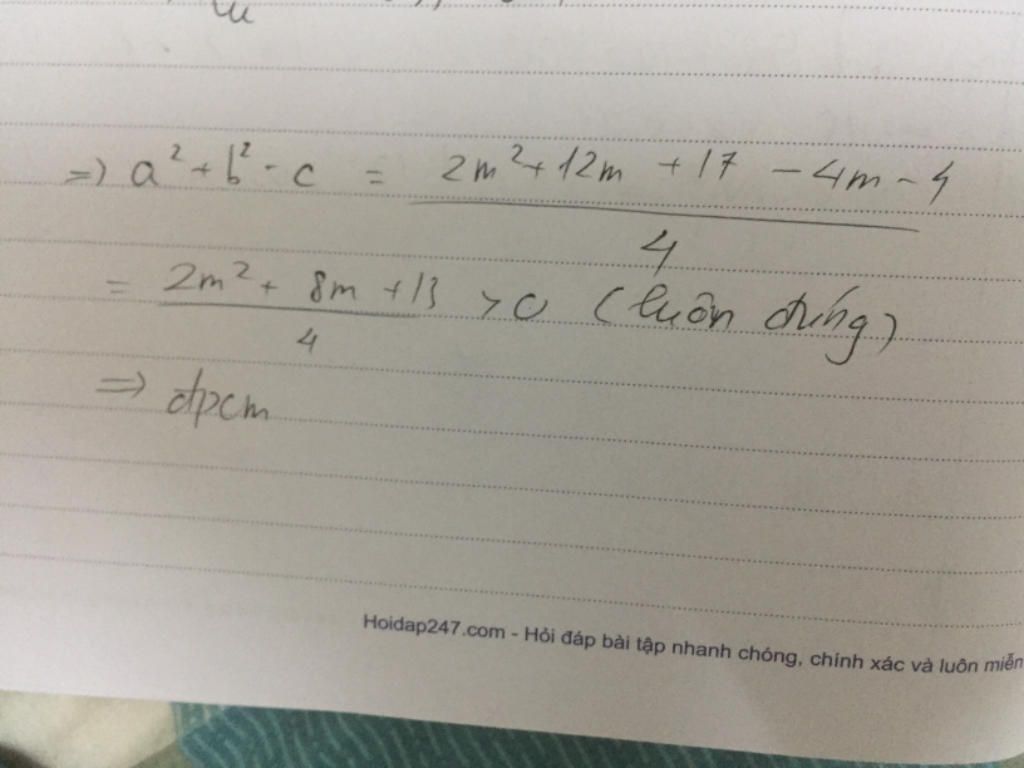 => a² + b² - c = (2m² + 12m + 17 - 4m - 4)/4
= (2m² + 8m + 13)/4 > 0 (luôn đúng)
=> đpcm
Hoidap247.com - Hỏi đáp bài tập nhanh chóng, chính xác và luôn miễn